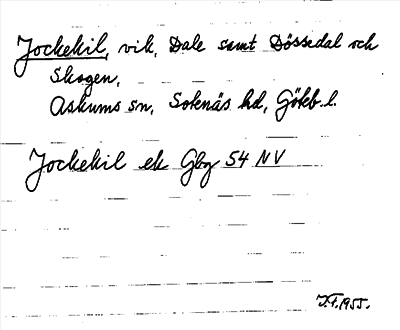 Jockekil, vik, Dale samt Dössedal och
Skogen,
Askums sn, Sotenäs hd, Götеb. l.
Jockekil ek Gbg 54 NV
J.F. 1955.